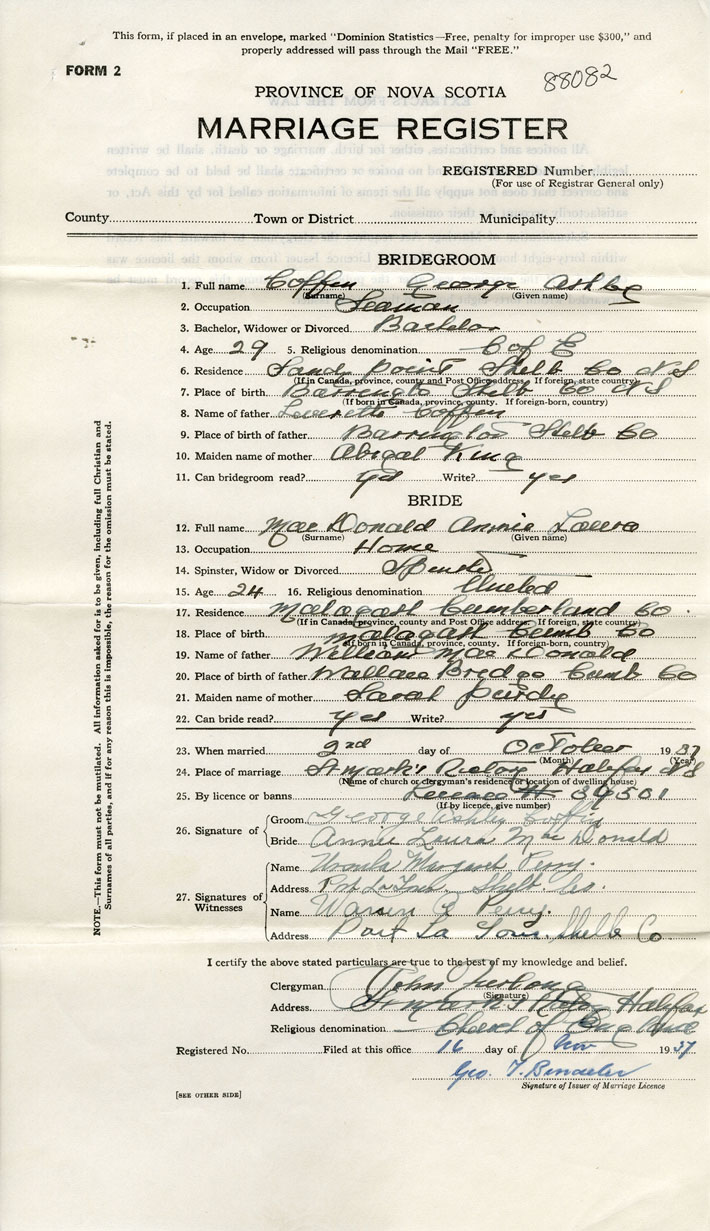 This form, if placed in an envelope, marked "Dominion Statistics—Free, penalty for improper use $300," and
properly addressed will pass through the Mail "FREE."
FORM 2
88082
PROVINCE OF NOVA SCOTIA
MARRIAGE REGISTER
REGISTERED Number
(For use of Registrar General only)
County Town or District Municipality
BRIDEGROOM
1. Full name Coffin George Ashley
(Surname) (Given name)
2. Occupation Seaman
3. Bachelor, Widower or Divorced Bachelor
4. Age 29 5. Religious denomination C of E
6. Residence Sandy Point Shelb Co N S
(If in Canada, province, county and Post Office address. If foreign, state country)
7. Place of birth Barrington Shelb Co N S
(If born in Canada, province, county. If foreign-born, country)
8. Name of father Leverette Coffin
9. Place of birth of father Barrington Shelb Co
10. Maiden name of mother Abigal King
11. Can bridegroom read? yes Write? yes
BRIDE
12. Full name Mac Donald Annie Laura
(Surname) (Given name)
13. Occupation Home
14. Spinster, Widow or Divorced Spinster
15. Age 24 16. Religious denomination United
17. Residence Malagash Cumberland Co.
(If in Canada, province, county and Post Office address. If foreign, state country)
18. Place of birth Malagash Cumb Co
(If born in Canada, province, county. If foreign-born, country)
19. Name of father William Mac Donald
20. Place of birth of father Wallace Bridge Cumb Co
21. Maiden name of mother Sarah Purdy
22. Can bride read? yes Write? yes
23. When married 2nd day of October 1937
(Month) (Year)
24. Place of marriage St Mark's Rectory Halifax NS
(Name of church or clergyman's residence or location of dwelling house)
25. By licence or banns Licence # 39501
(If by licence, give number)
26. Signature of
Groom George Ashley Coffin
Bride Annie Laura MacDonald
27. Signatures of Witnesses
Name Ursula Margaret Perry.
Address Pt La Tour. Shelb. Co.
Name Warren Perry.
Address Port La Tour. Shelb Co
I certify the above stated particulars are true to the best of my knowledge and belief.
Clergyman John
(Signature)
Address St Mark's Rectory Halifax
Religious denomination Church of England
Registered No. Filed at this office 16 day of Nov 1937
Geo. T.
Signature of Issuer of Marriage Licence
[SEE OTHER SIDE]
NOTE.—This form must not be mutilated. All information asked for is to be given, including full Christian and
Surnames of all parties, and if for any reason this is impossible, the reason for the omission must be stated.